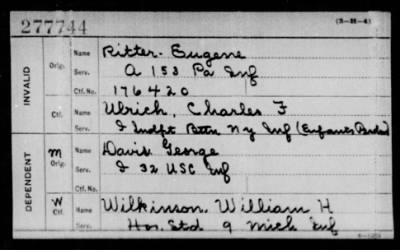 277744
(3-M-4)
INVALID
Orig.
Name Ritter. Eugene
Serv. A 153 Pa Inf
Ctf. No. 176420
Ctf.
Name Ulrich, Charles F
Serv. I Indpt Battn N Y Inf (Enfants Perdus)
DEPENDENT
M
Orig.
Name Davis George
Serv. I 32 USC Inf
Ctf. No.
W
Ctf.
Name Wilkinson. William H
Serv. Hos. Std 9 Mich Inf